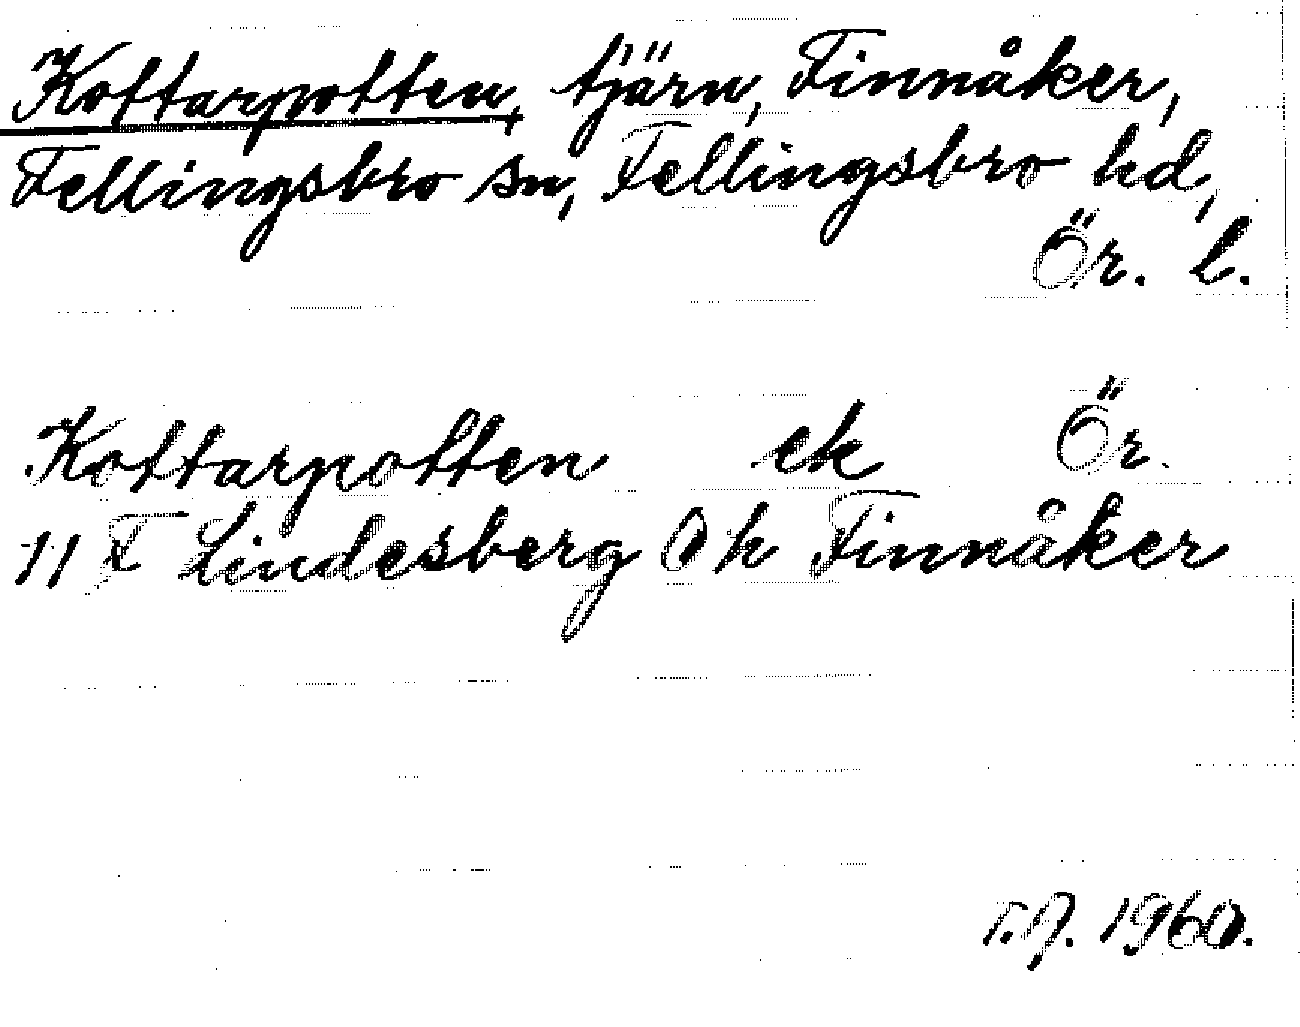 Kottarpotten, tjärn, Finnåker,
Fellingsbro sn, Fellingsbro hd,
Ör. l.
Kottarpotten ek Ör.
11 F Lindesberg Ö h Finnåker
1960.